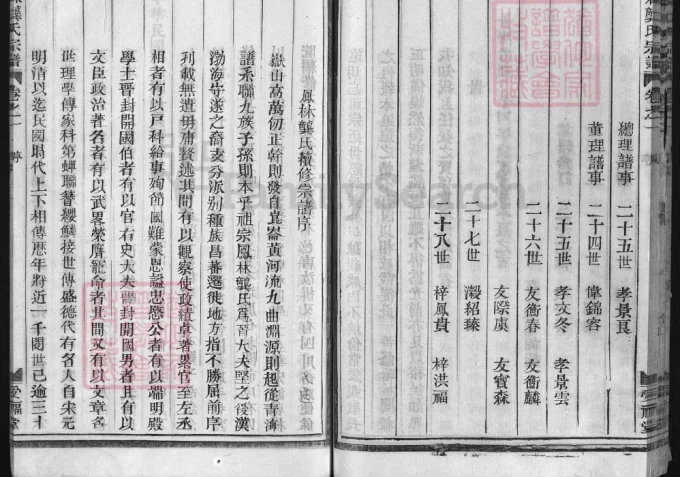 龔氏宗譜 卷之一
總理譜事 二十五世 孝景艮
董理譜事 二十四世 偉錦容
二十五世 孝文冬 孝景雲
二十六世 友衞春 友衞麟
友際虞 友賓森
二十七世 瀔紹臻
二十八世 梓鳳貴 梓洪福
受福堂
鳳林龔氏續修宗譜序
嶽山高萬仞正幹則發自崑崙黃河流九曲淵源則起從青海
譜系聯九族子孫則本乎祖宗鳳林龔氏爲晉大夫堅之後漢
渤海守遂之裔支分派別種族昌蕃遷徙地方指不勝屈前序
列載無遺毋庸贅述其間有以觀察使政績卓著累官至左丞
相者有以戸科給事殉節國難蒙恩諡忠愍公者有以端明殿
學士晋封開國伯者有以官右史大夫馪封開國男者且有以
文臣政治著名者有以武畧榮膺寵命者其間又有以文章名
世理學傳家科第蟬聯簪纓鱗接世傳盛德代有名人自宋元
明清以迄民國時代上下相傳歴年將近一千閱世已逾三十
龔氏宗譜 卷之一 序
受福堂
FamilySearch